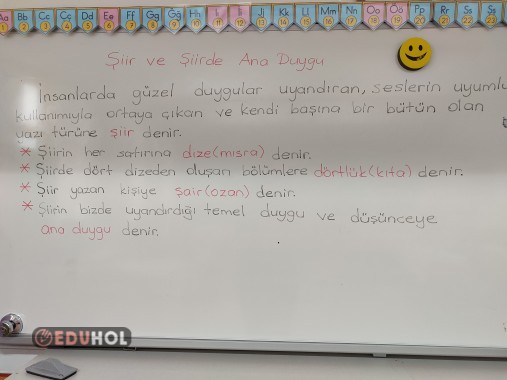 Aa Bb Cc Çç Dd Ee Ff Gg Ğğ Hh Iı İi Jj Kk Ll Mm Nn Oo Öö Pp Rr Ss Şş
1 2 3 4 5 6 7 8 9 10 11 12 13 14 15 16 17 18 19 20 21 22 23
Şiir ve Şiirde Ana Duygu
İnsanlarda güzel duygular uyandıran, seslerin uyumlu
kullanımıyla ortaya çıkan ve kendi başına bir bütün olan
yazı türüne şiir denir.
* Şiirin her satırına dize(mısra) denir.
* Şiirde dört dizeden oluşan bölümlere dörtlük(kıta) denir.
* Şiir yazan kişiye şair(ozan) denir.
* Şiirin bizde uyandırdığı temel duygu ve düşünceye
ana duygu denir.
EDUHOL